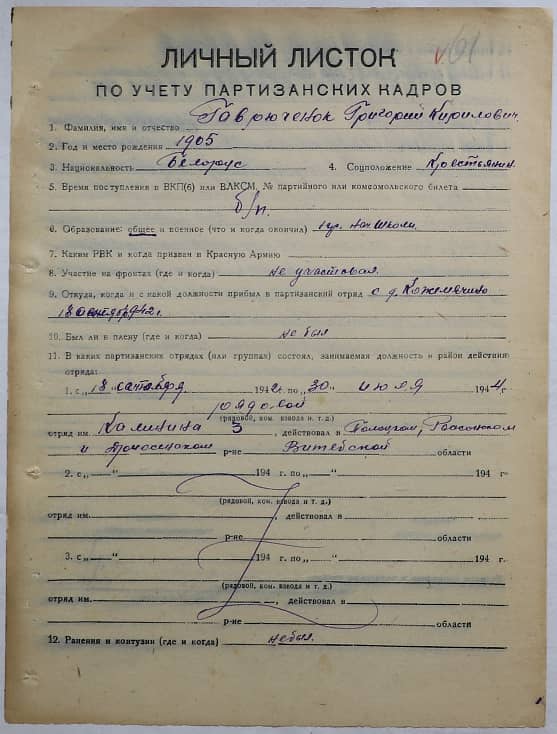 61
ЛИЧНЫЙ ЛИСТОК
ПО УЧЕТУ ПАРТИЗАНСКИХ КАДРОВ
1. Фамилия, имя и отчество Гаврюченок Григорий Кирилович
2. Год и место рождения 1905
3. Национальность Белорус 4. Соцположение Крестьянин
5. Время поступления в ВКП(б) или ВЛКСМ, № партийного или комсомольского билета
б/п.
6. Образование: общее и военное (что и когда окончил) нач школы
7. Каким РВК и когда призван в Красную Армию
8. Участие на фронтах (где и когда) не участвовал
9. Откуда, когда и с какой должности прибыл в партизанский отряд с д. Кожемячино
18 сентября 42 г.
10. Был ли в плену (где и когда) не был
11. В каких партизанских отрядах (или группах) состоял, занимаемая должность и район действия
отряда:
1. с „18 сентября 1942 г. по „30“ июля 1944 г.
рядовой
(рядовой, ком. взвода и т. д.)
отряд им. Калинина 3, действовал в Полоцком, Россонском
и Дриссенском р-не Витебской области
2. с „ “ 194 г. по „ “ 194 г.
(рядовой, ком. взвода и т. д.)
отряд им. , действовал в
р-не области
3. с „ “ 194 г. по „ “ 194 г.
(рядовой, ком. взвода и т. д.)
отряд им. , действовал в
р-не области
12. Ранения и контузии (где и когда) не был.